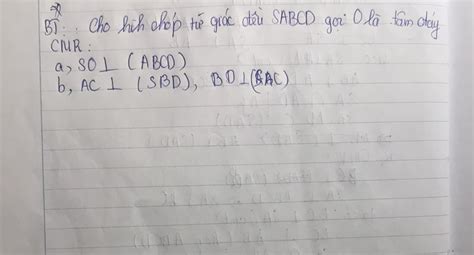 BT: Cho hình chóp tứ giác đều SABCD gọi O là tâm đáy
CMR:
a, SO ⊥ (ABCD)
b, AC ⊥ (SBD), BO ⊥ (SAC)